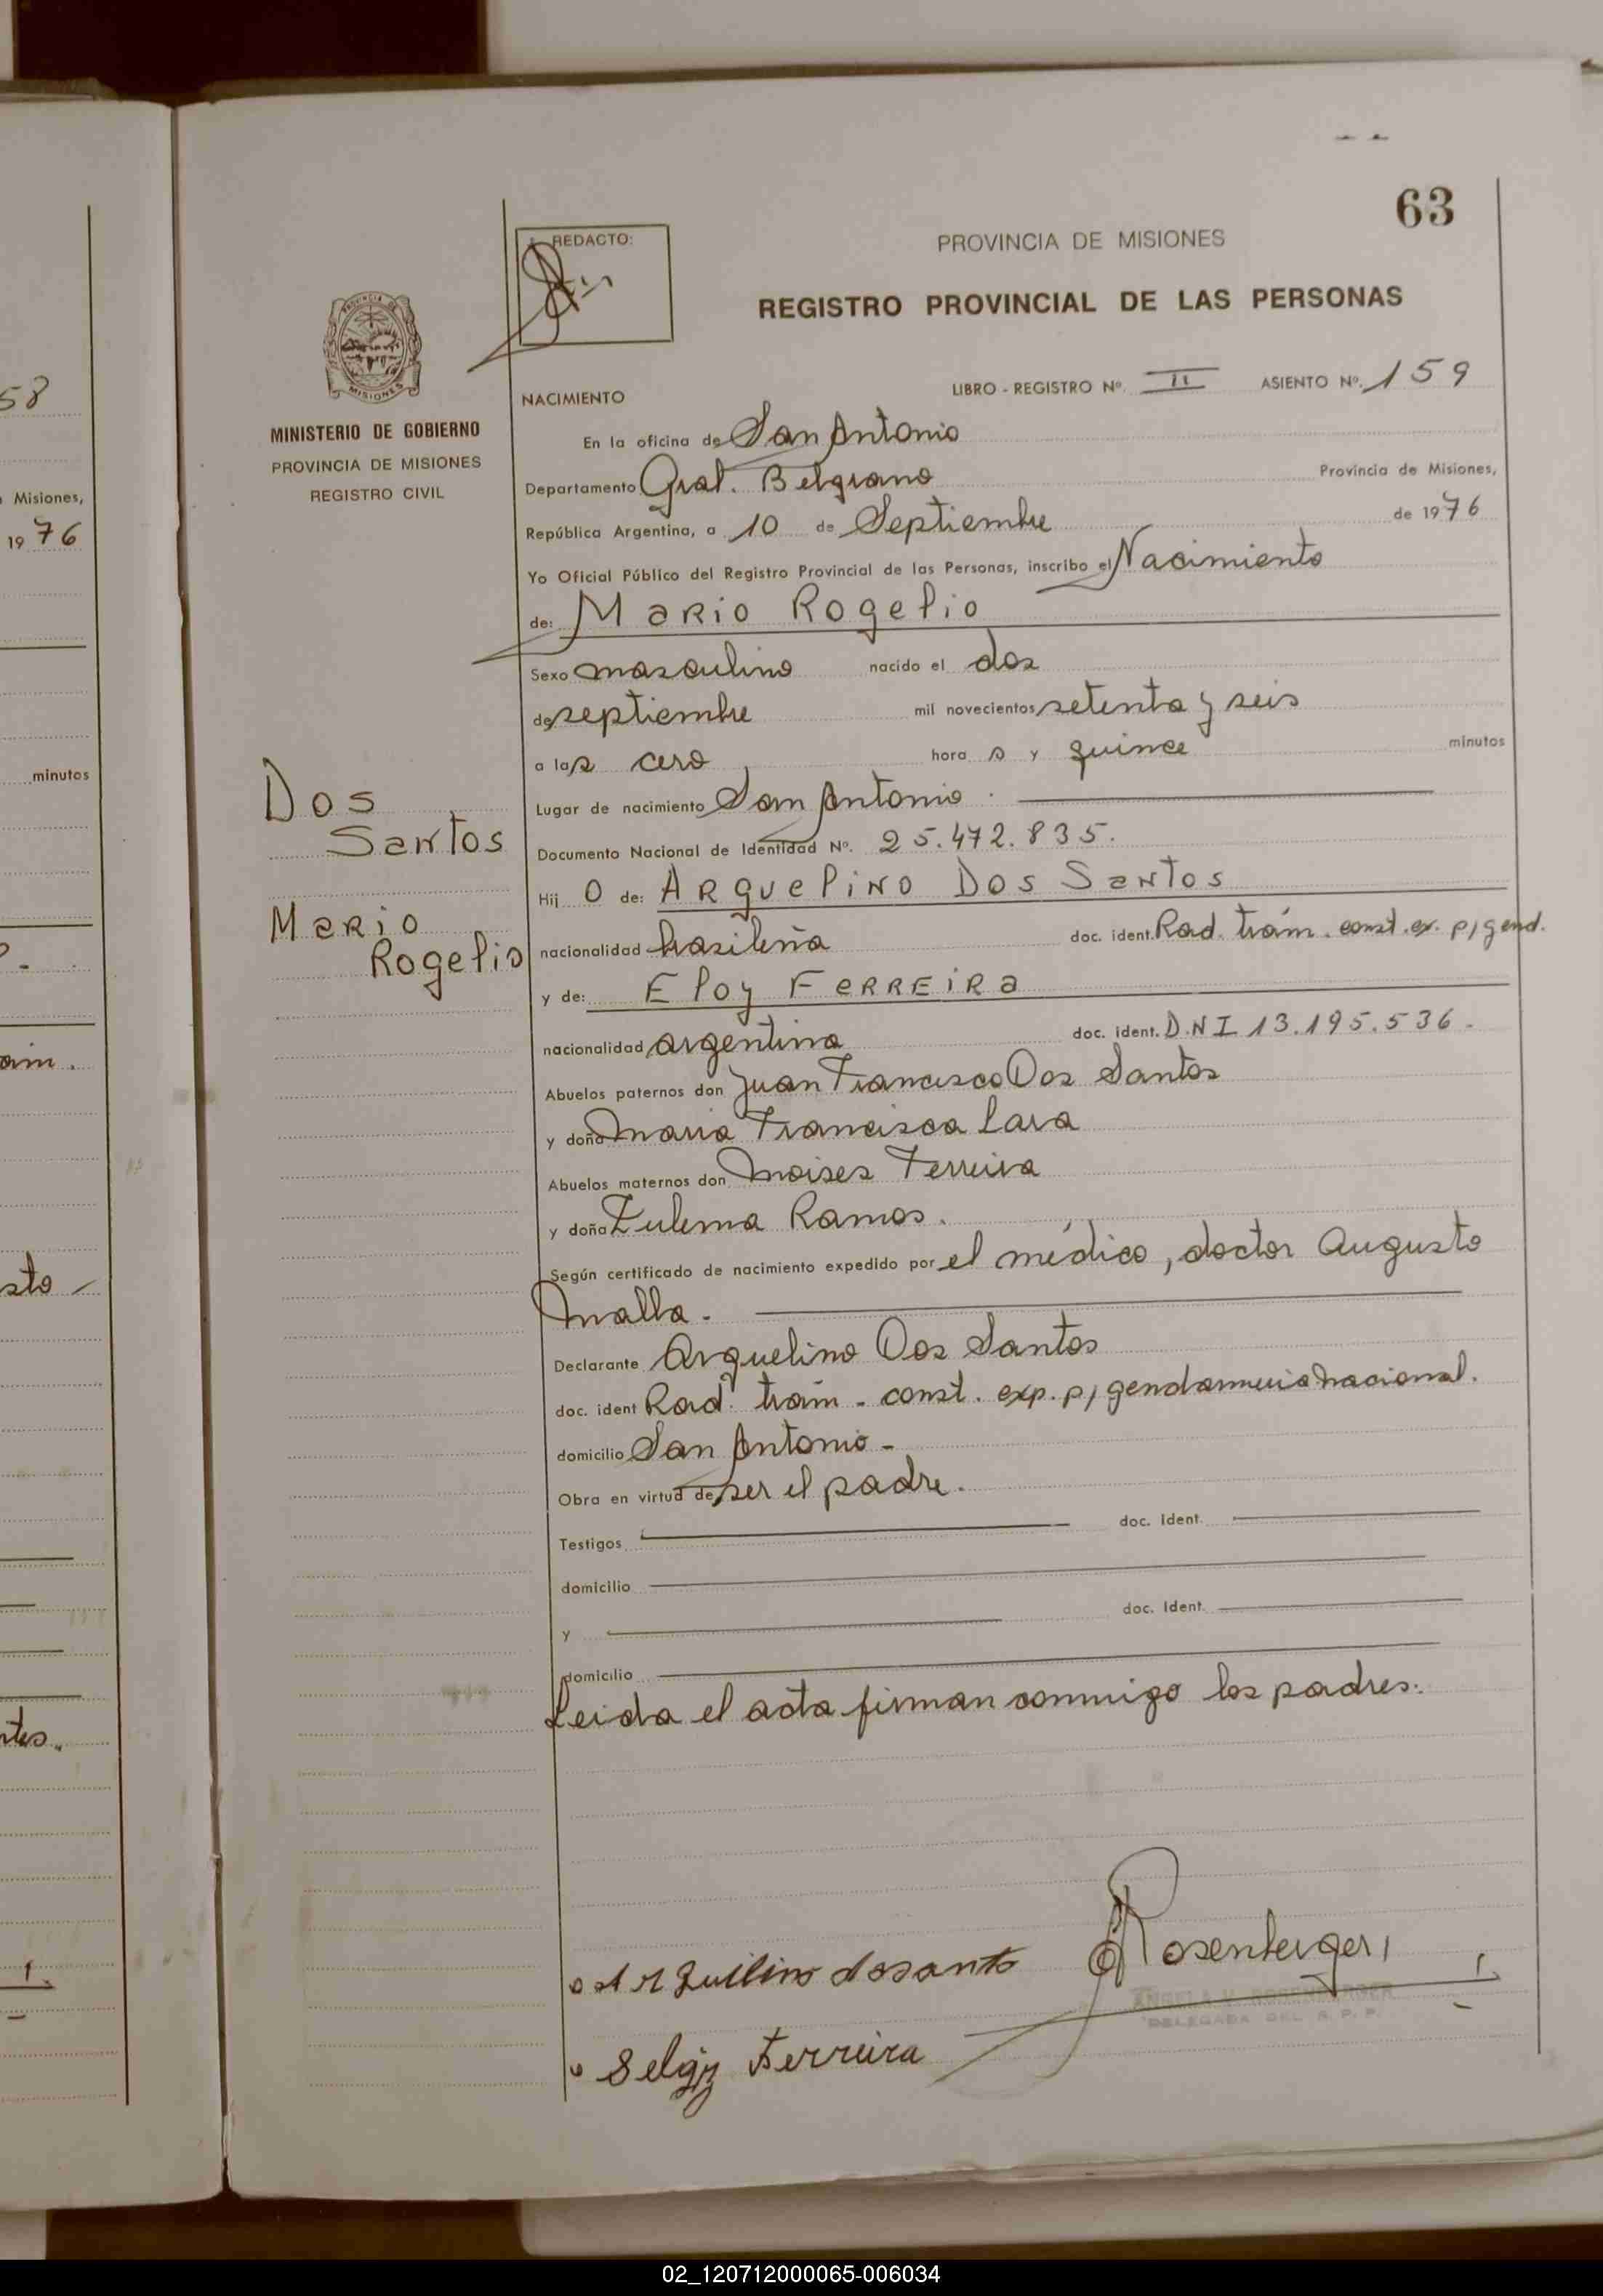 63
REDACTO:
PROVINCIA DE MISIONES
REGISTRO PROVINCIAL DE LAS PERSONAS
PROVINCIA DE
MISIONES
MINISTERIO DE GOBIERNO
PROVINCIA DE MISIONES
REGISTRO CIVIL
Dos
Santos
Mario
Rogelio
NACIMIENTO LIBRO - REGISTRO Nº. II ASIENTO Nº. 159
En la oficina de San Antonio
Departamento Gral. Belgrano Provincia de Misiones,
República Argentina, a 10 de Septiembre de 1976
Yo Oficial Público del Registro Provincial de las Personas, inscribo el Nacimiento
de: Mario Rogelio
Sexo masculino nacido el dos
de septiembre mil novecientos setenta y seis
a las cero hora s y quince minutos
Lugar de nacimiento San Antonio .
Documento Nacional de Identidad Nº. 25.472.835.
Hij o de: Arquelino Dos Santos
nacionalidad brasileña doc. ident. Rad. trám. const. ex. p/gend.
y de: Eloy Ferreira
nacionalidad argentina doc. ident. D.N I 13.195.536.
Abuelos paternos don Juan Francisco Dos Santos
y doña Maria Francisca Lara
Abuelos maternos don Moises Ferreira
y doña Zulema Ramos.
Según certificado de nacimiento expedido por el médico, doctor Augusto
Malla.
Declarante Arquelino Dos Santos
doc. ident Rad. trám. const. exp. p/gendarmeria nacional.
domicilio San Antonio -
Obra en virtud de ser el padre.
Testigos doc. Ident.
domicilio
y doc. Ident.
domicilio
Leida el acta firman conmigo los padres.
Rosenberger
ANGELA V. ROSENBERGER
DELEGADA DEL R. P. P.
Ferreira
58
Misiones,
1976
minutos
02_120712000065-006034